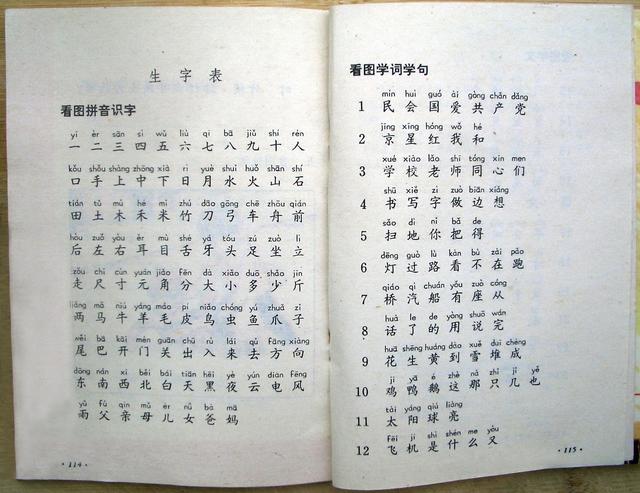 生字表
看图拼音识字
yī èr sān sì wǔ liù qī bā jiǔ shí rén
一 二 三 四 五 六 七 八 九 十 人
kǒu shǒu shàng zhōng xià rì yuè shuǐ huǒ shān shí
口 手 上 中 下 日 月 水 火 山 石
tián tǔ mù hé mǐ zhú dāo gōng chē zhōu qián
田 土 木 禾 米 竹 刀 弓 车 舟 前
hòu zuǒ yòu ěr mù shé yá tóu zú zuò lì
后 左 右 耳 目 舌 牙 头 足 坐 立
zǒu chǐ cùn yuán jiǎo fēn dà xiǎo duō shǎo jīn
走 尺 寸 元 角 分 大 小 多 少 斤
liǎng mǎ niú yáng máo pí niǎo chóng yú zhuǎ zǐ
两 马 牛 羊 毛 皮 鸟 虫 鱼 爪 子
wěi bā kāi mén guān chū rù lái qù fāng xiàng
尾 巴 开 门 关 出 入 来 去 方 向
dōng nán xī běi bái tiān hēi yè yún diàn fēng
东 南 西 北 白 天 黑 夜 云 电 风
yǔ fù qīn mǔ ér nǚ bà mā
雨 父 亲 母 儿 女 爸 妈
·114·
看图学词学句
mín huì guó ài gòng chǎn dǎng
1 民 会 国 爱 共 产 党
jīng xīng hóng wǒ hé
2 京 星 红 我 和
xué xiào lǎo shī tóng xīn men
3 学 校 老 师 同 心 们
shū xiě zì zuò biān xiǎng
4 书 写 字 做 边 想
sǎo dì nǐ bǎ de
5 扫 地 你 把 得
dēng guò lù kàn bù zài pǎo
6 灯 过 路 看 不 在 跑
qiáo qì chuán yǒu zuò cóng
7 桥 汽 船 有 座 从
huà le de yòng shuō wán
8 话 了 的 用 说 完
huā shēng huáng dào xuě duī chéng
9 花 生 黄 到 雪 堆 成
jī yā é zhè nà zhī jǐ yě
10 鸡 鸭 鹅 这 那 只 几 也
tài yáng qiú liàng
11 太 阳 球 亮
fēi jī shì shén me yòu
12 飞 机 是 什 么 又
·115·